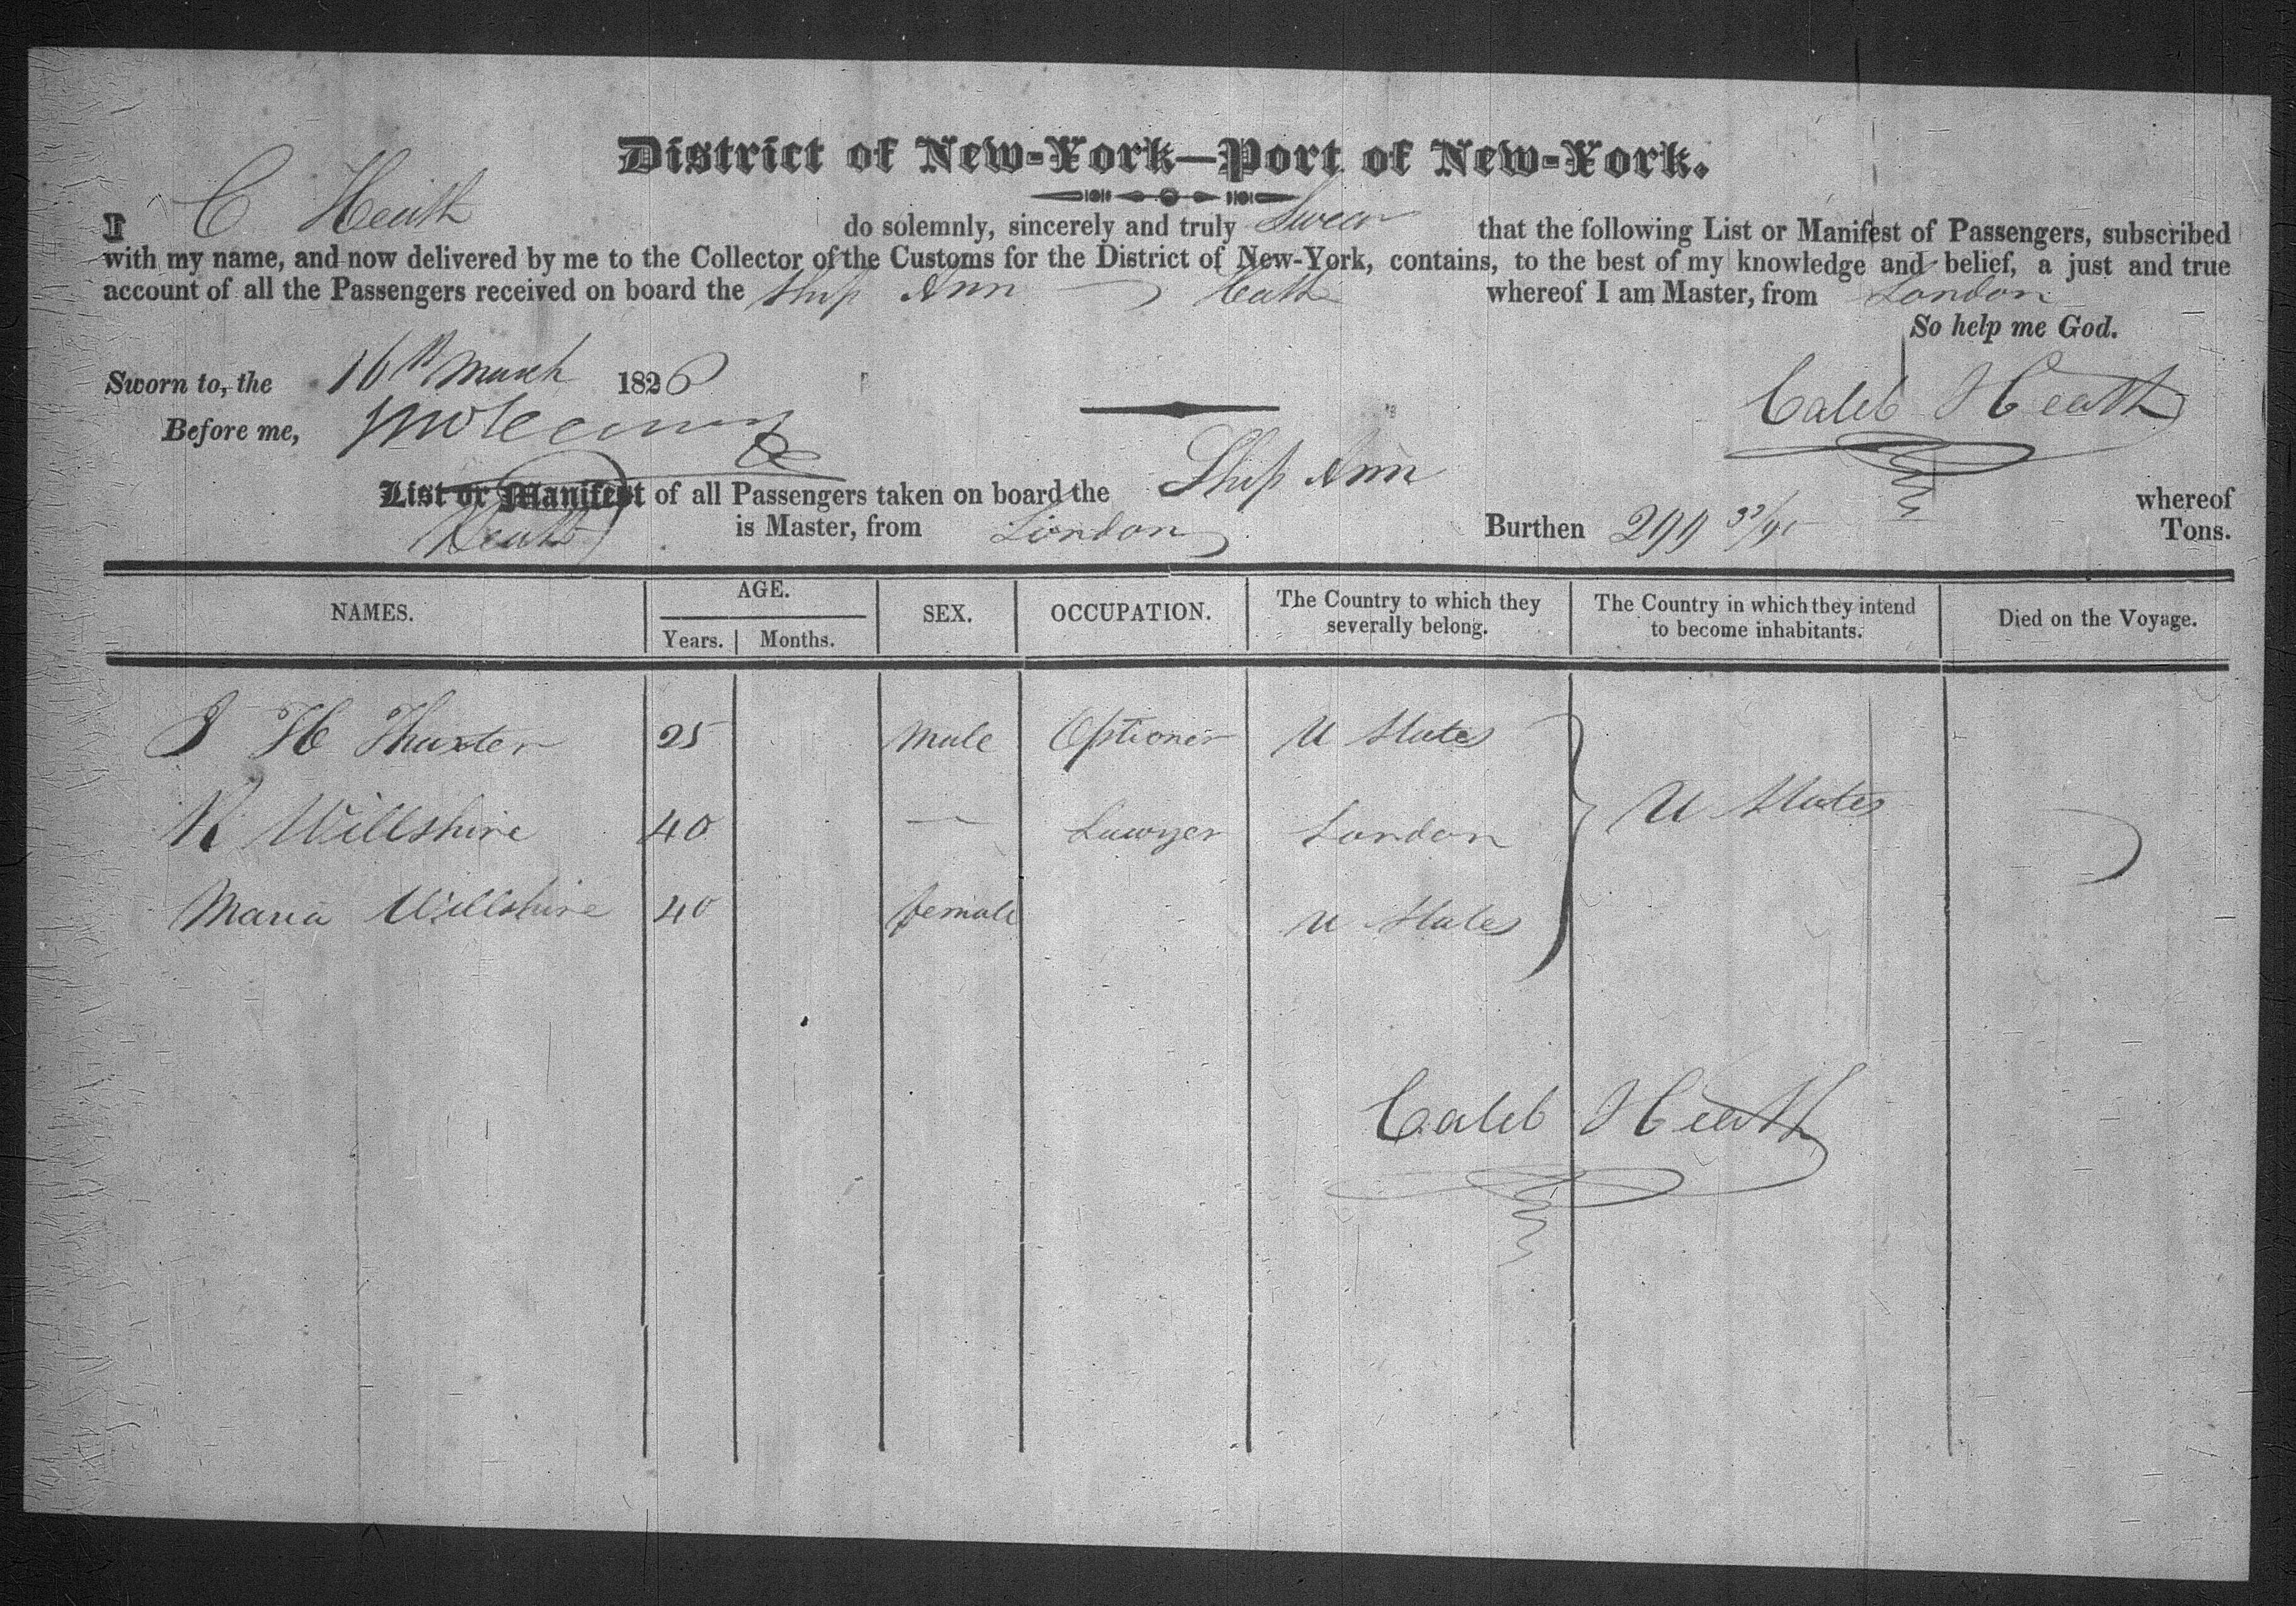 District of New-York—Port of New-York.
I C Heath do solemnly, sincerely and truly Swear that the following List or Manifest of Passengers, subscribed
with my name, and now delivered by me to the Collector of the Customs for the District of New-York, contains, to the best of my knowledge and belief, a just and true
account of all the Passengers received on board the Ship Ann Heath whereof I am Master, from London
So help me God.
Sworn to, the 16th March 1826
Caleb Heath
Before me,
List or Manifest of all Passengers taken on board the Ship Ann whereof
Heath is Master, from London Burthen 299 Tons.
NAMES. AGE. SEX. OCCUPATION. The Country to which they severally belong. The Country in which they intend to become inhabitants. Died on the Voyage.
Years. Months.
J H Thaxter 25 Male U States
R Willshire 40 — Lawyer London U States
Maria Willshire 40 female U States
Caleb Heath